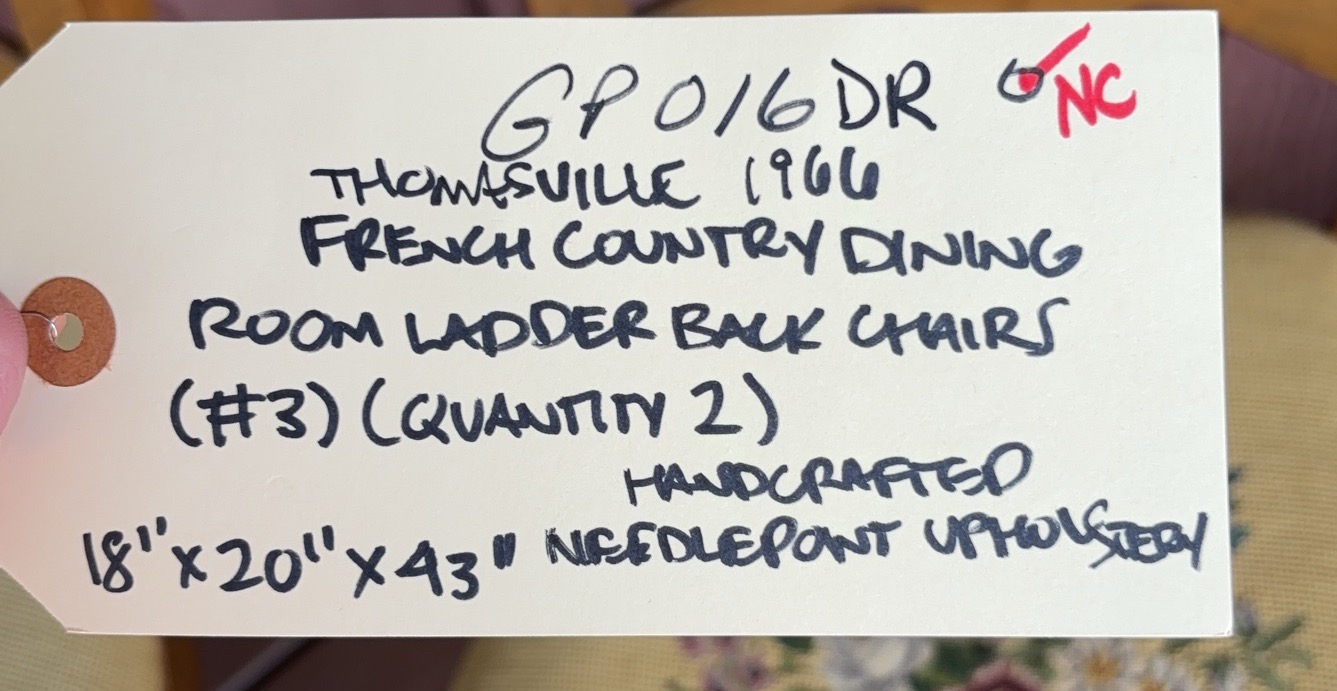 GP016DR NC
THOMASVILLE 1966
FRENCH COUNTRY DINING
ROOM LADDER BACK CHAIRS
(#3) (QUANTITY 2)
HANDCRAFTED
18" x 20" x 43" NEEDLEPOINT UPHOLSTERY